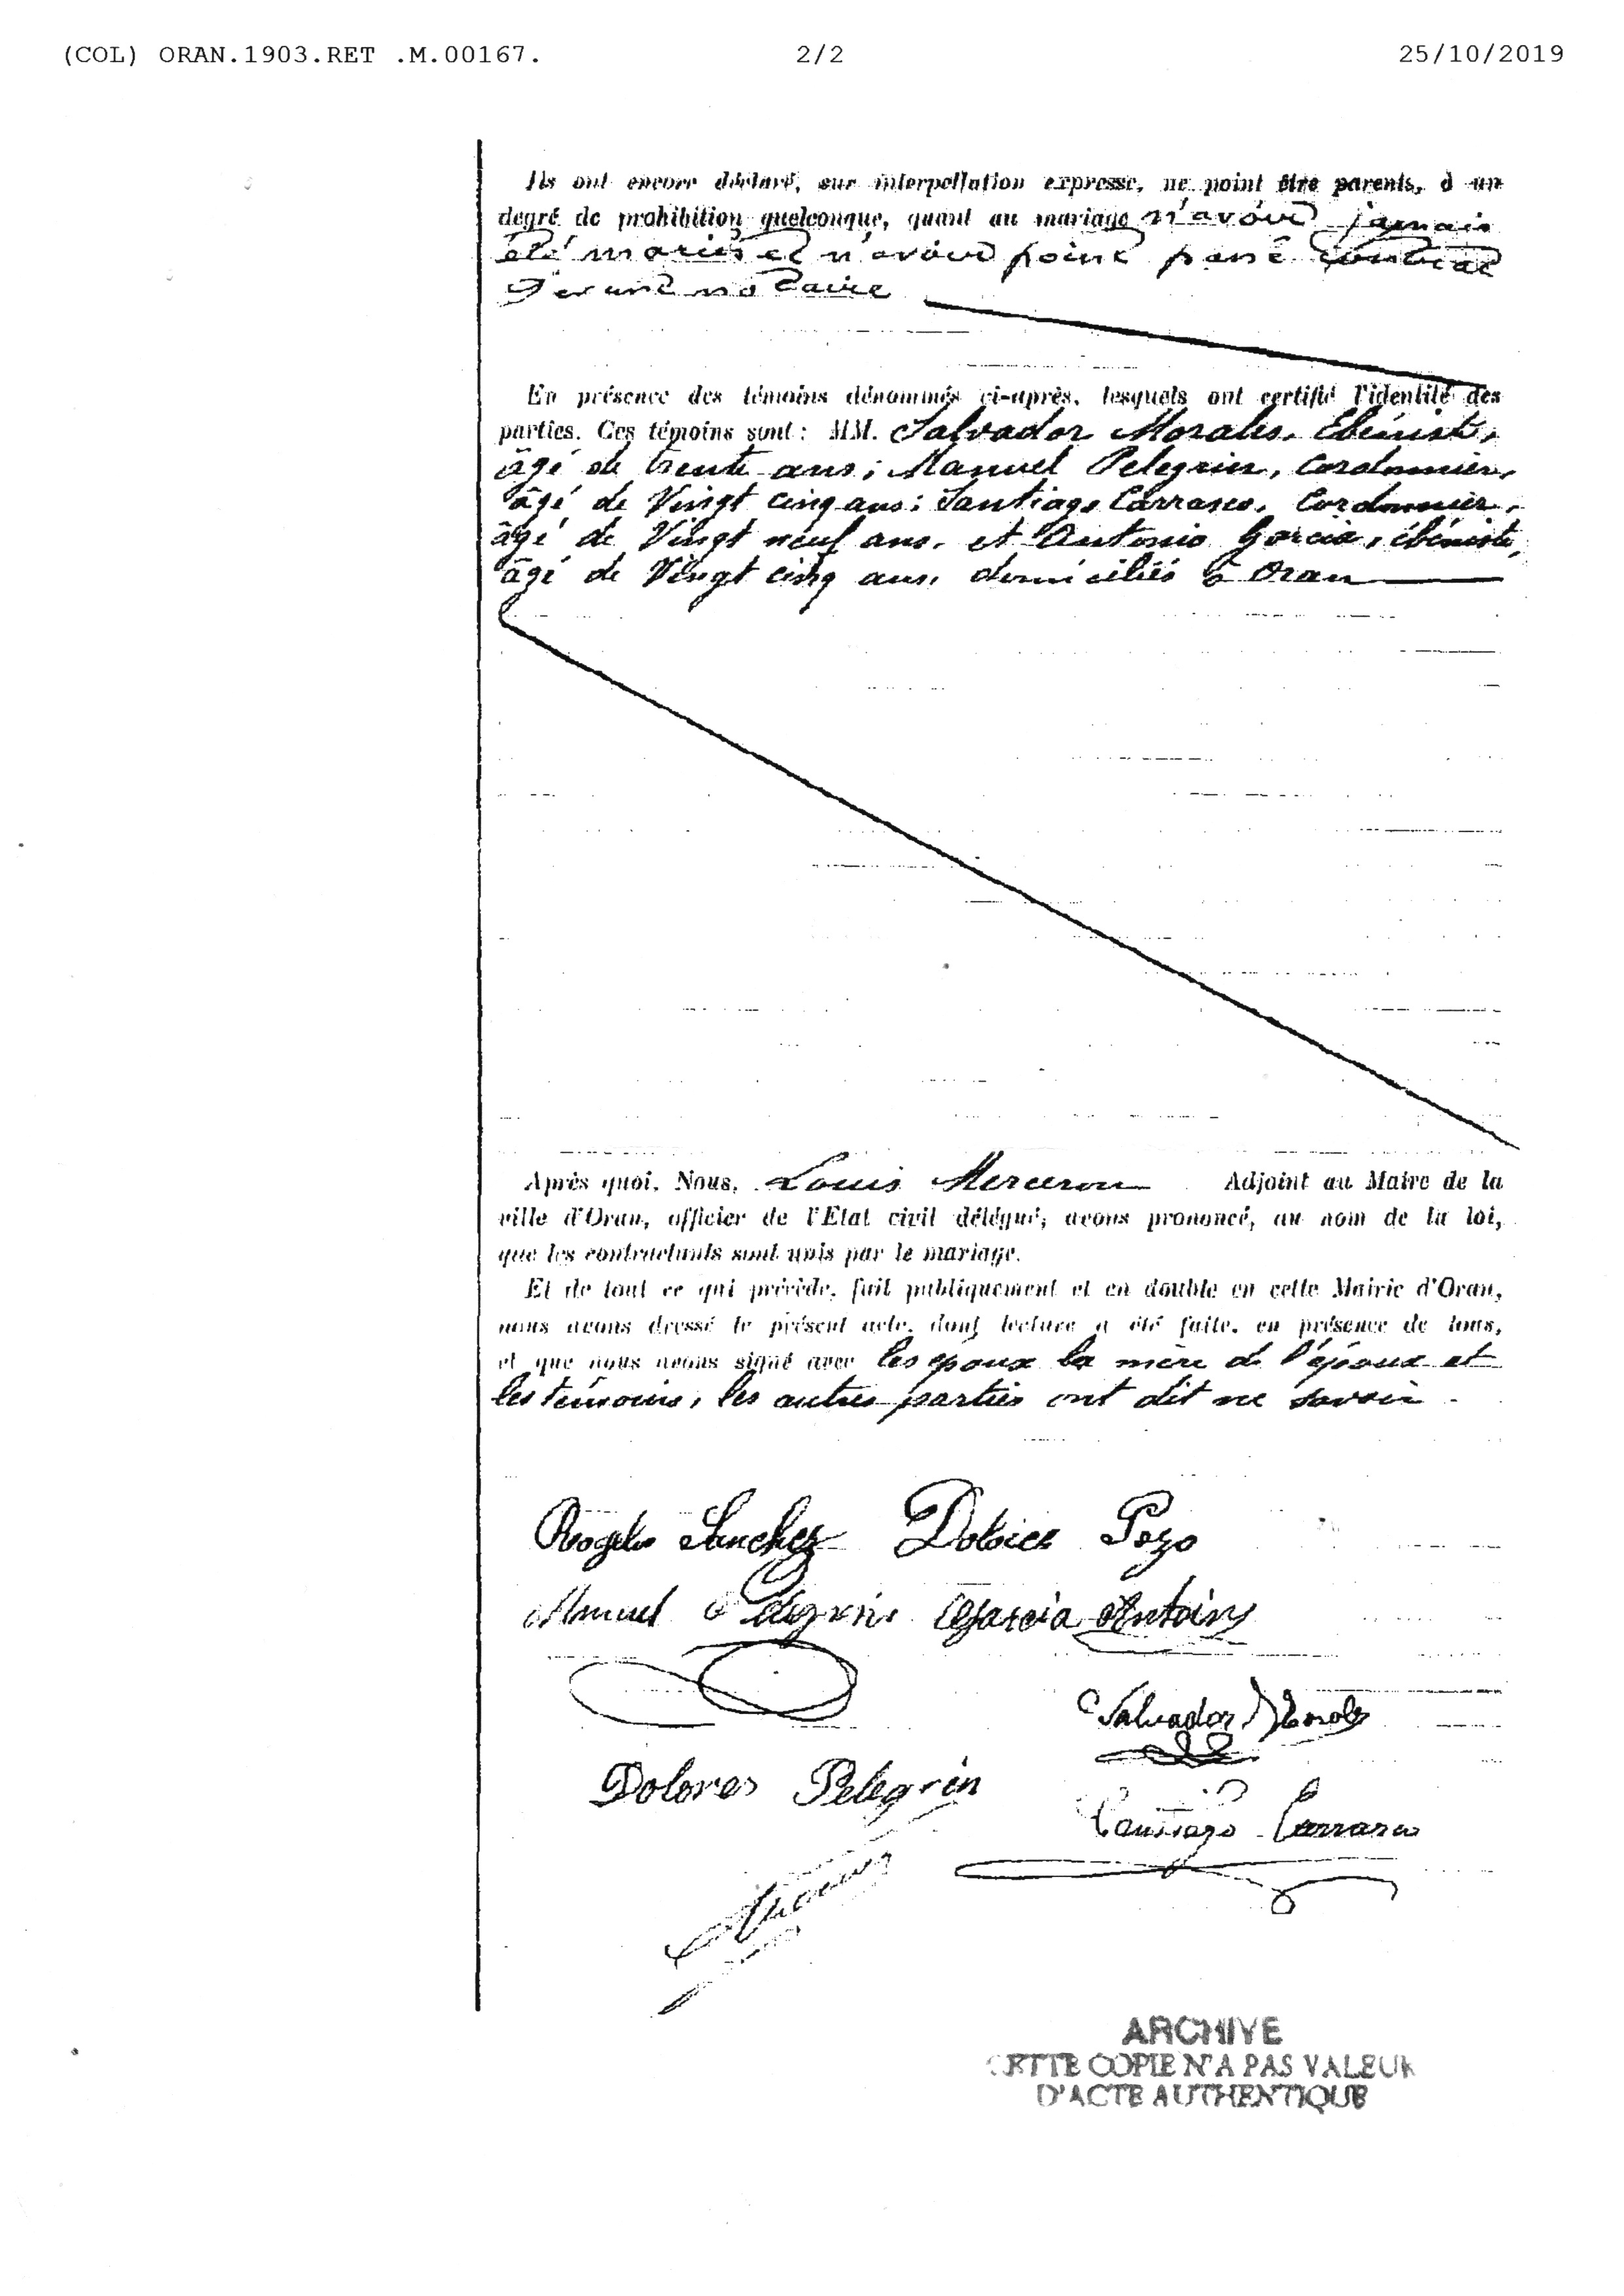 (COL) ORAN.1903.RET .M.00167. 2/2 25/10/2019
Ils ont encore déclaré, sur interpellation expresse, ne point être parents, à un
degré de prohibition quelconque, quant au mariage n'avoir jamais
été mariés et n'avoir point passé contrat
devant notaire
En présence des témoins dénommés ci-après, lesquels ont certifié l'identité des
parties. Ces témoins sont : MM. Salvador Morales, Ebéniste,
âgé de trente ans ; Manuel Pelegrin, Cordonnier,
âgé de Vingt cinq ans ; Santiago Carrasco, Cordonnier,
âgé de Vingt neuf ans, et Antonio Garcia, ébéniste,
âgé de Vingt cinq ans, domiciliés à Oran
Après quoi, Nous, Louis Merceron Adjoint au Maire de la
ville d'Oran, officier de l'Etat civil délégué, avons prononcé, au nom de la loi,
que les contractants sont unis par le mariage.
Et de tout ce qui précède, fait publiquement et en double en cette Mairie d'Oran,
nous avons dressé le présent acte, dont lecture a été faite, en présence de tous,
et que nous avons signé avec les époux la mère de l'époux et
les témoins, les autres parties ont dit ne savoir.
Rogelio Sanchez Dolores Pozo
Manuel Pelegrin Garcia Antoine
Salvador Morales
Dolores Pelegrin
Santiago Carrasco
ARCHIVE
CETTE COPIE N'A PAS VALEUR
D'ACTE AUTHENTIQUE